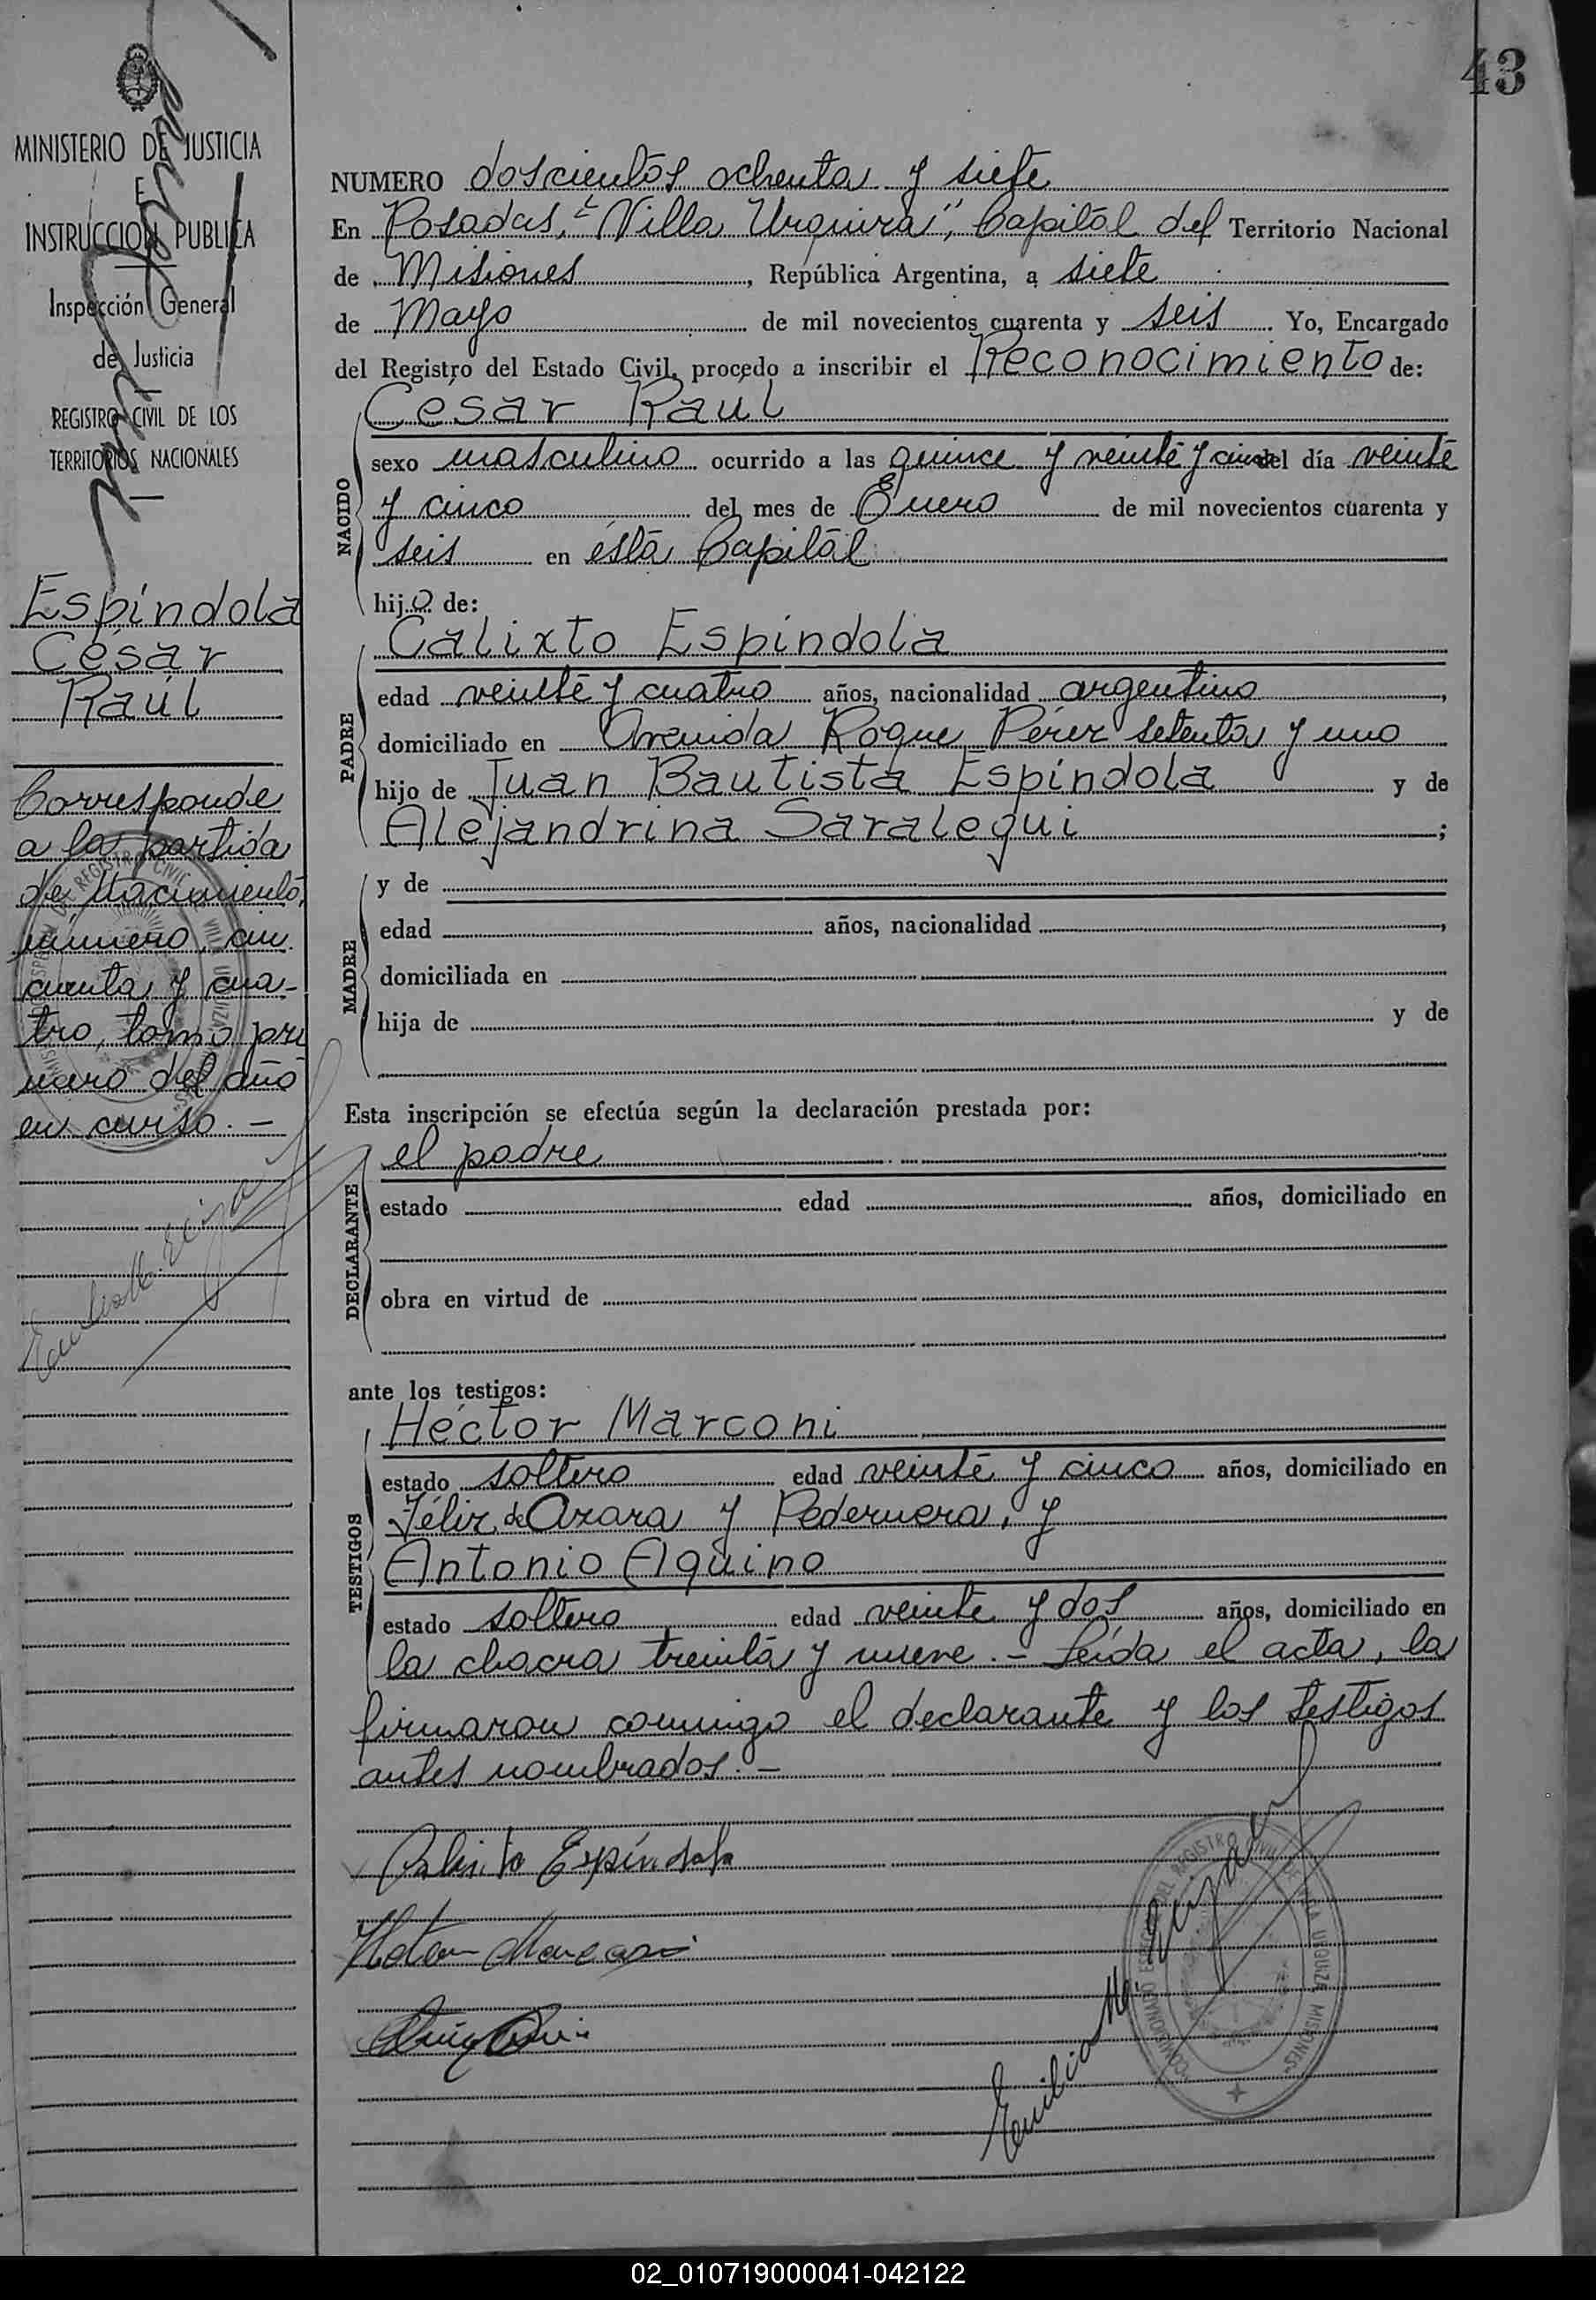 43
MINISTERIO DE JUSTICIA
E
INSTRUCCION PUBLICA
Inspección General
de Justicia
REGISTRO CIVIL DE LOS
TERRITORIOS NACIONALES
Espíndola
César
Raúl
Corresponde
a la partida
de Nacimiento,
número cin
cuenta y cua-
tro, tomo pri
mero del año
en curso. –
NUMERO doscientos ochenta y siete
En Posadas, "Villa Urquiza", Capital del Territorio Nacional
de Misiones, República Argentina, a siete
de Mayo de mil novecientos cuarenta y seis. Yo, Encargado
del Registro del Estado Civil, procedo a inscribir el Reconocimiento de:
César Raúl
NACIDO
sexo masculino ocurrido a las quince y veinte y cinco del día veinte
y cinco del mes de Enero de mil novecientos cuarenta y
seis en esta Capital
hijo de:
Calixto Espíndola
PADRE
edad veinte y cuatro años, nacionalidad argentino,
domiciliado en Avenida Roque Pérez setenta y uno
hijo de Juan Bautista Espíndola y de
Alejandrina Saralegui;
MADRE
y de
edad años, nacionalidad,
domiciliada en
hija de y de
Esta inscripción se efectúa según la declaración prestada por:
el padre
DECLARANTE
estado edad años, domiciliado en
obra en virtud de
ante los testigos:
Héctor Marconi
TESTIGOS
estado soltero edad veinte y cinco años, domiciliado en
Félix de Azara y Pedernera, y
Antonio Aquino
estado soltero edad veinte y dos años, domiciliado en
la chacra treinta y nueve. – Leída el acta, la
firmaron conmigo el declarante y los testigos
antes nombrados. –
Calixto Espíndola
02_010719000041-042122